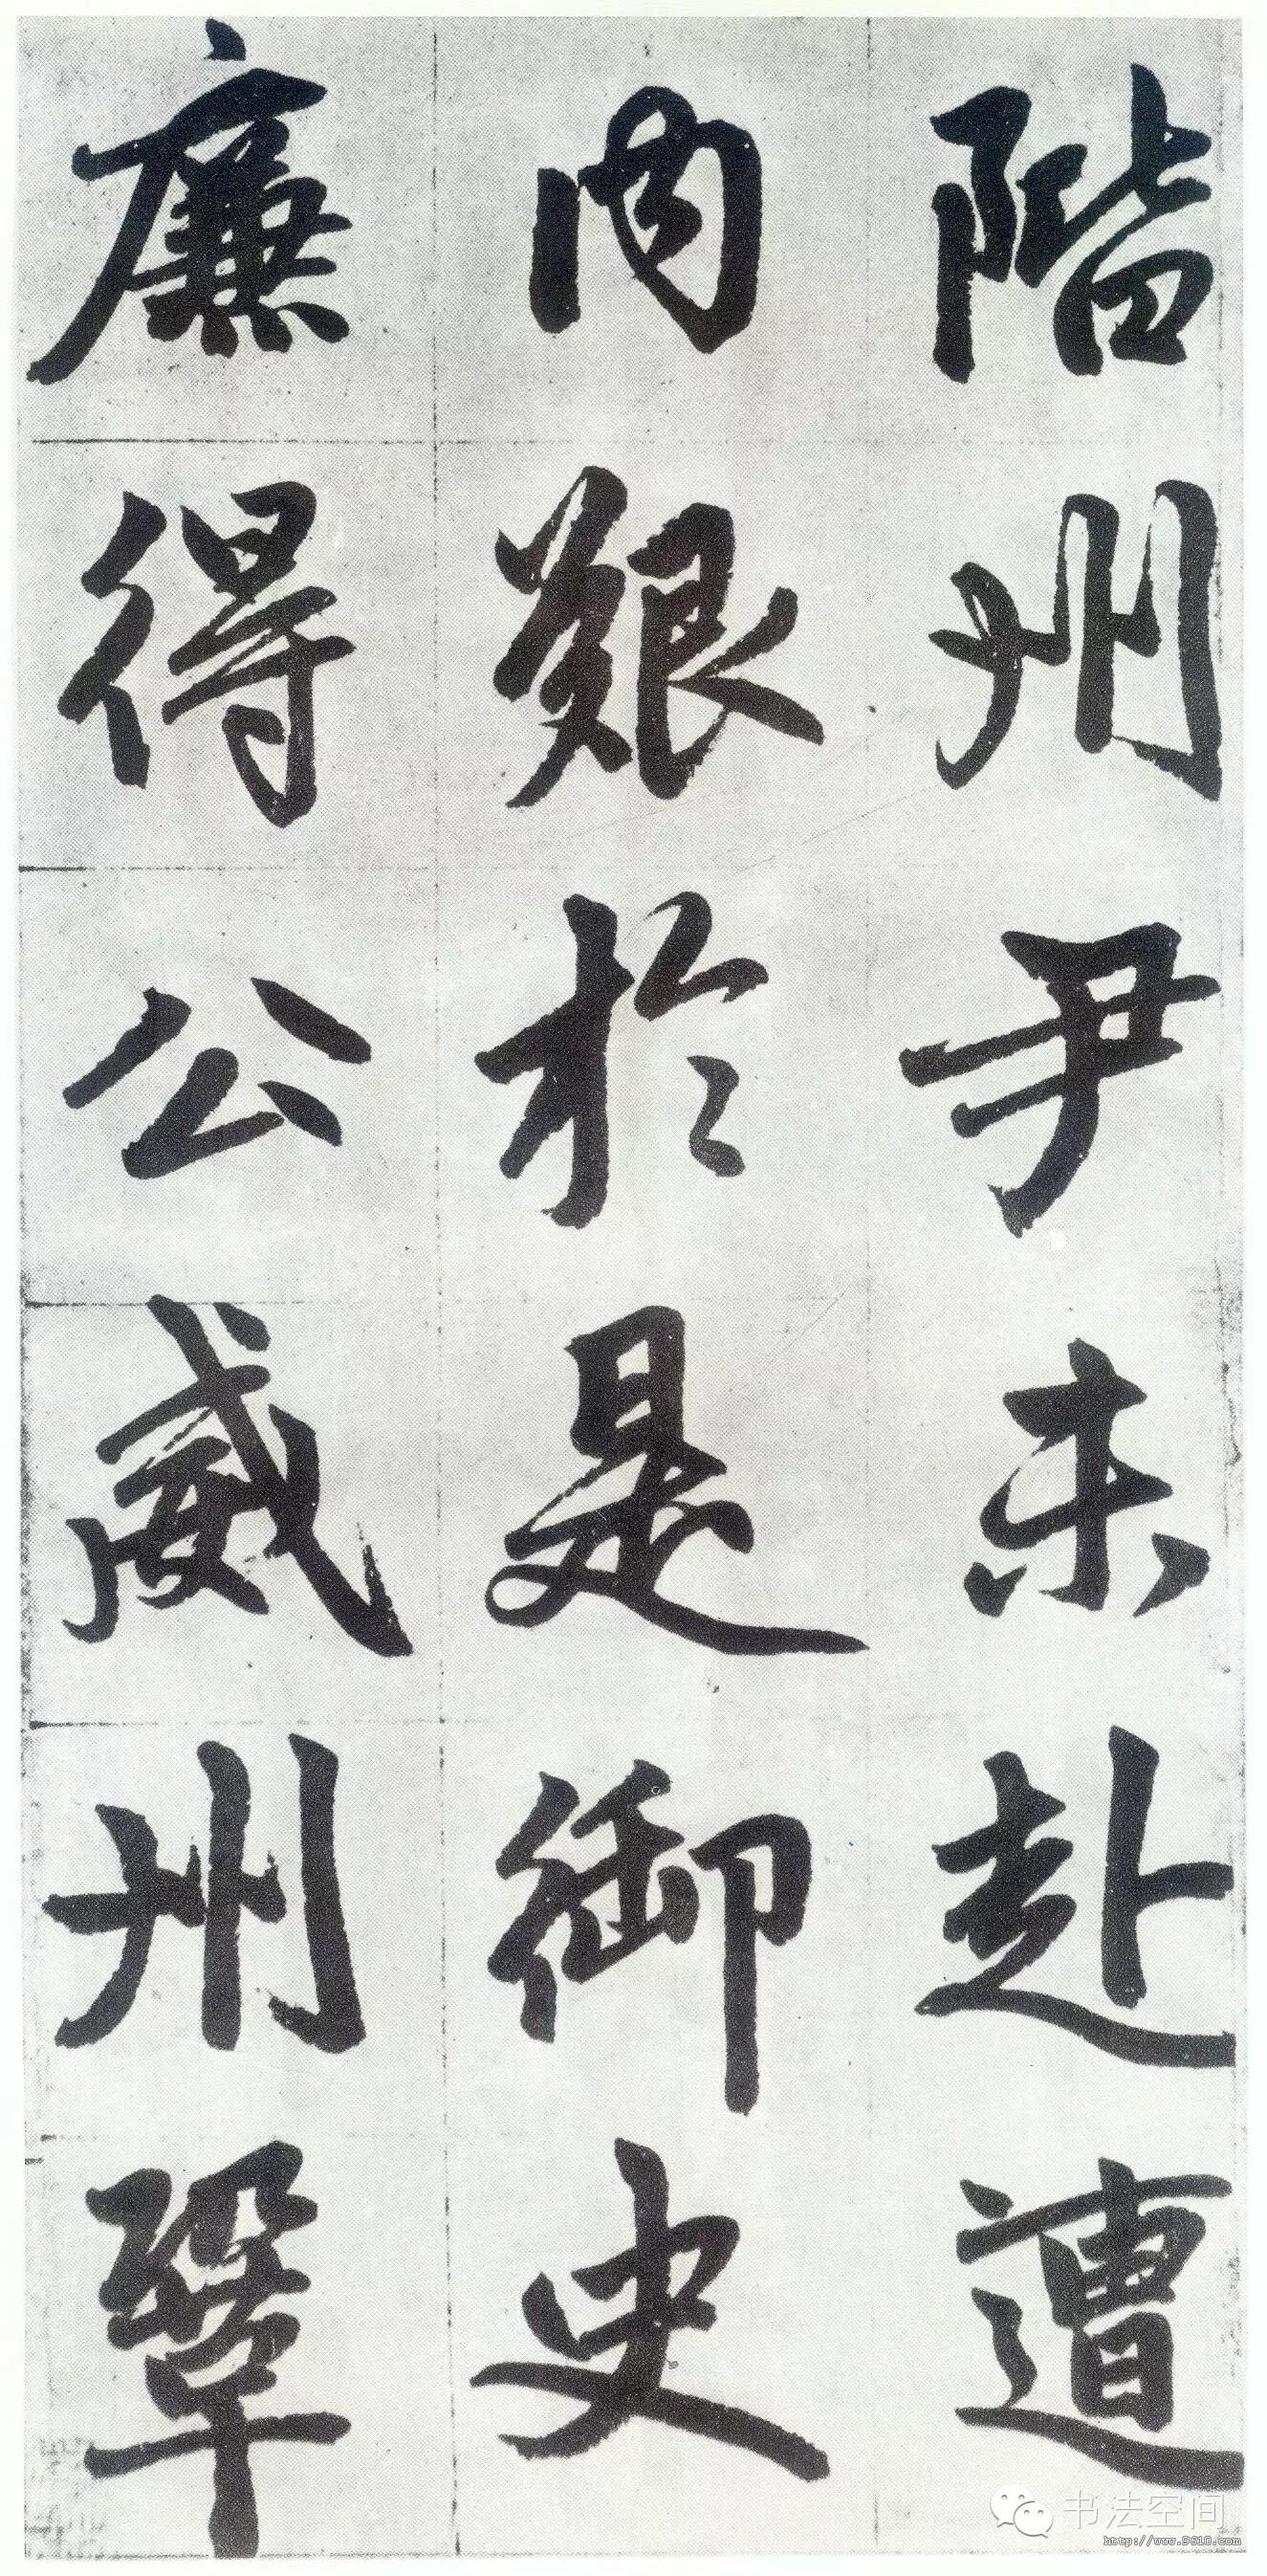 階州尹未赴遭
內艱於是御史
廉得公威州鞏
书法空间
http://www.9610.com